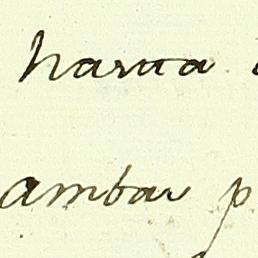 harua
ambar p